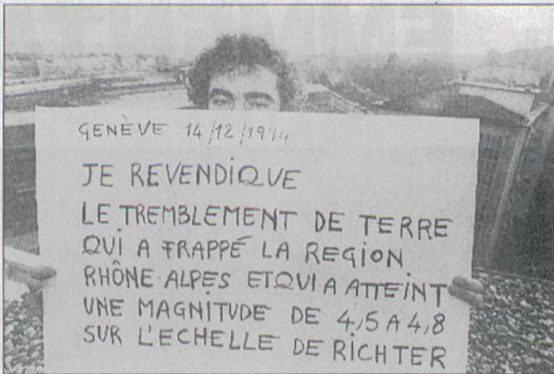 GENÈVE 14/12/1994
JE REVENDIQUE
LE TREMBLEMENT DE TERRE
QUI A FRAPPÉ LA REGION
RHÔNE-ALPES ET QUI A ATTEINT
UNE MAGNITUDE DE 4,5 A 4,8
SUR L'ECHELLE DE RICHTER